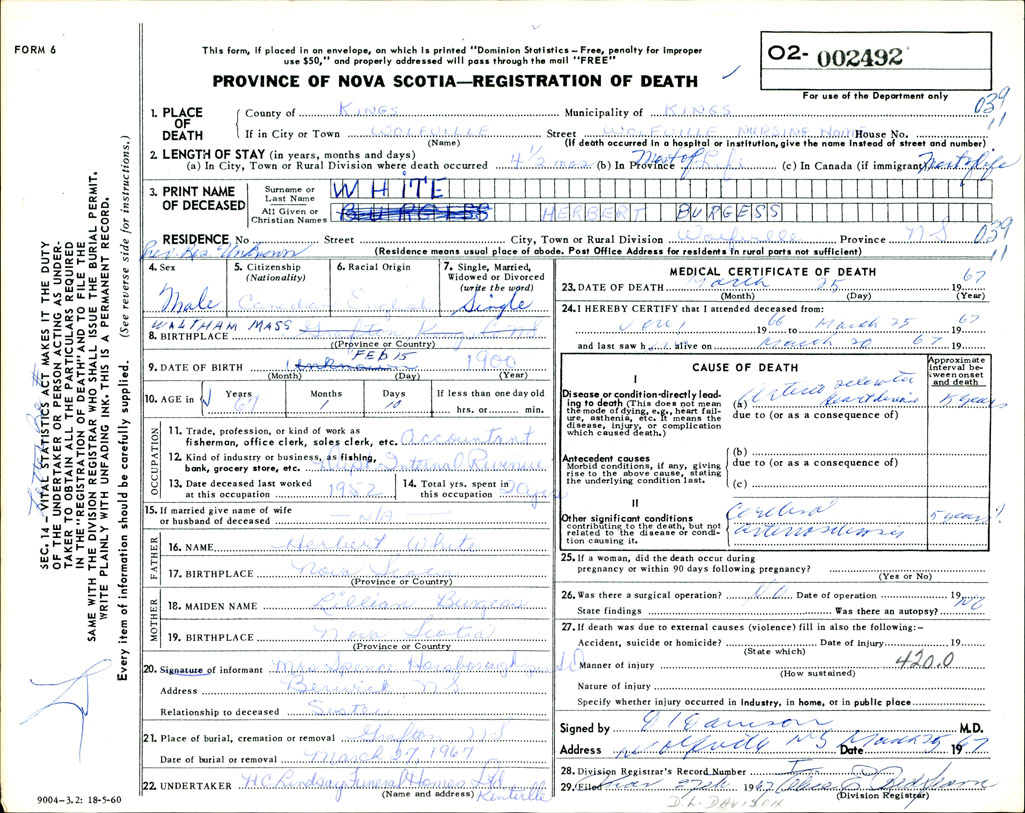 FORM 6
This form, if placed in an envelope, on which is printed "Dominion Statistics – Free, penalty for improper
use $50," and properly addressed will pass through the mail "FREE"
PROVINCE OF NOVA SCOTIA—REGISTRATION OF DEATH
02- 002492
For use of the Department only
039
11
1. PLACE OF DEATH
County of KINGS Municipality of KINGS
If in City or Town WOLFVILLE Street WOLFVILLE NURSING HOME House No.
(Name) (If death occurred in a hospital or institution, give the name instead of street and number)
2. LENGTH OF STAY (in years, months and days)
(a) In City, Town or Rural Division where death occurred 4 1/2 mos (b) In Province Most of Life (c) In Canada (if immigrant) Most of Life
3. PRINT NAME OF DECEASED
Surname or Last Name WHITE
All Given or Christian Names BURGESS HERBERT BURGESS
RESIDENCE, No. Street City, Town or Rural Division Wolfville Province NS
039
11
Prev. Res. Unknown (Residence means usual place of abode. Post Office Address for residents in rural parts not sufficient)
4. Sex Male
5. Citizenship (Nationality) Canadian
6. Racial Origin English
7. Single, Married, Widowed or Divorced (write the word) Single
WALTHAM MASS
8. BIRTHPLACE Grafton Kings
(Province or Country)
9. DATE OF BIRTH Unknown FEB 15 1900
(Month) (Day) (Year)
10. AGE in Years 67 Months 1 Days 10 If less than one day old hrs. or min.
OCCUPATION
11. Trade, profession, or kind of work as fisherman, office clerk, sales clerk, etc. Accountant
12. Kind of industry or business, as fishing, bank, grocery store, etc. Dept. Internal Revenue
13. Date deceased last worked at this occupation 1952
14. Total yrs. spent in this occupation 20 years
15. If married give name of wife or husband of deceased — N/A —
FATHER
16. NAME Herbert White
17. BIRTHPLACE Nova Scotia
(Province or Country)
MOTHER
18. MAIDEN NAME Lillian Burgess
19. BIRTHPLACE Nova Scotia
(Province or Country
20. Signature of informant Mrs Spence
Address Berwick, NS
Relationship to deceased Sister
21. Place of burial, cremation or removal Grafton NS
Date of burial or removal March 27, 1967
22. UNDERTAKER H C Lindsay Funeral Homes Ltd
(Name and address) Kentville
9004-3.2: 18-5-60
MEDICAL CERTIFICATE OF DEATH
23. DATE OF DEATH March 25 1967
(Month) (Day) (Year)
24. I HEREBY CERTIFY that I attended deceased from:
Nov 1966 to March 25 1967
and last saw h im alive on March 20 1967
CAUSE OF DEATH
Approximate interval between onset and death
I
Disease or condition directly leading to death (This does not mean the mode of dying, e.g., heart failure, asthenia, etc. It means the disease, injury, or complication which caused death.)
(a) Arteriosclerotic heart disease 5 years
due to (or as a consequence of)
Antecedent causes
Morbid conditions, if any, giving rise to the above cause, stating the underlying condition last.
(b)
due to (or as a consequence of)
(c)
II
Other significant conditions contributing to the death, but not related to the disease or condition causing it.
Cerebral arteriosclerosis 5 years
25. If a woman, did the death occur during
pregnancy or within 90 days following pregnancy?
(Yes or No)
26. Was there a surgical operation? No Date of operation 19
State findings Was there an autopsy? No
27. If death was due to external causes (violence) fill in also the following:–
Accident, suicide or homicide? Date of injury 19
(State which)
Manner of injury 420.0
(How sustained)
Nature of injury
Specify whether injury occurred in industry, in home, or in public place
Signed by M.D.
Address Wolfville NS Date March 25 1967
28. Division Registrar's Record Number
29. Filed 1967
(Division Registrar)
D.L. DAVISON
SEC. 14 – VITAL STATISTICS ACT MAKES IT THE DUTY
OF THE UNDERTAKER OR PERSON ACTING AS UNDER-
TAKER TO OBTAIN ALL THE PARTICULARS REQUIRED
IN THE "REGISTRATION OF DEATH" AND TO FILE THE
SAME WITH THE DIVISION REGISTRAR WHO SHALL ISSUE THE BURIAL PERMIT.
WRITE PLAINLY WITH UNFADING INK. THIS IS A PERMANENT RECORD.
Every item of information should be carefully supplied. (See reverse side for instructions.)